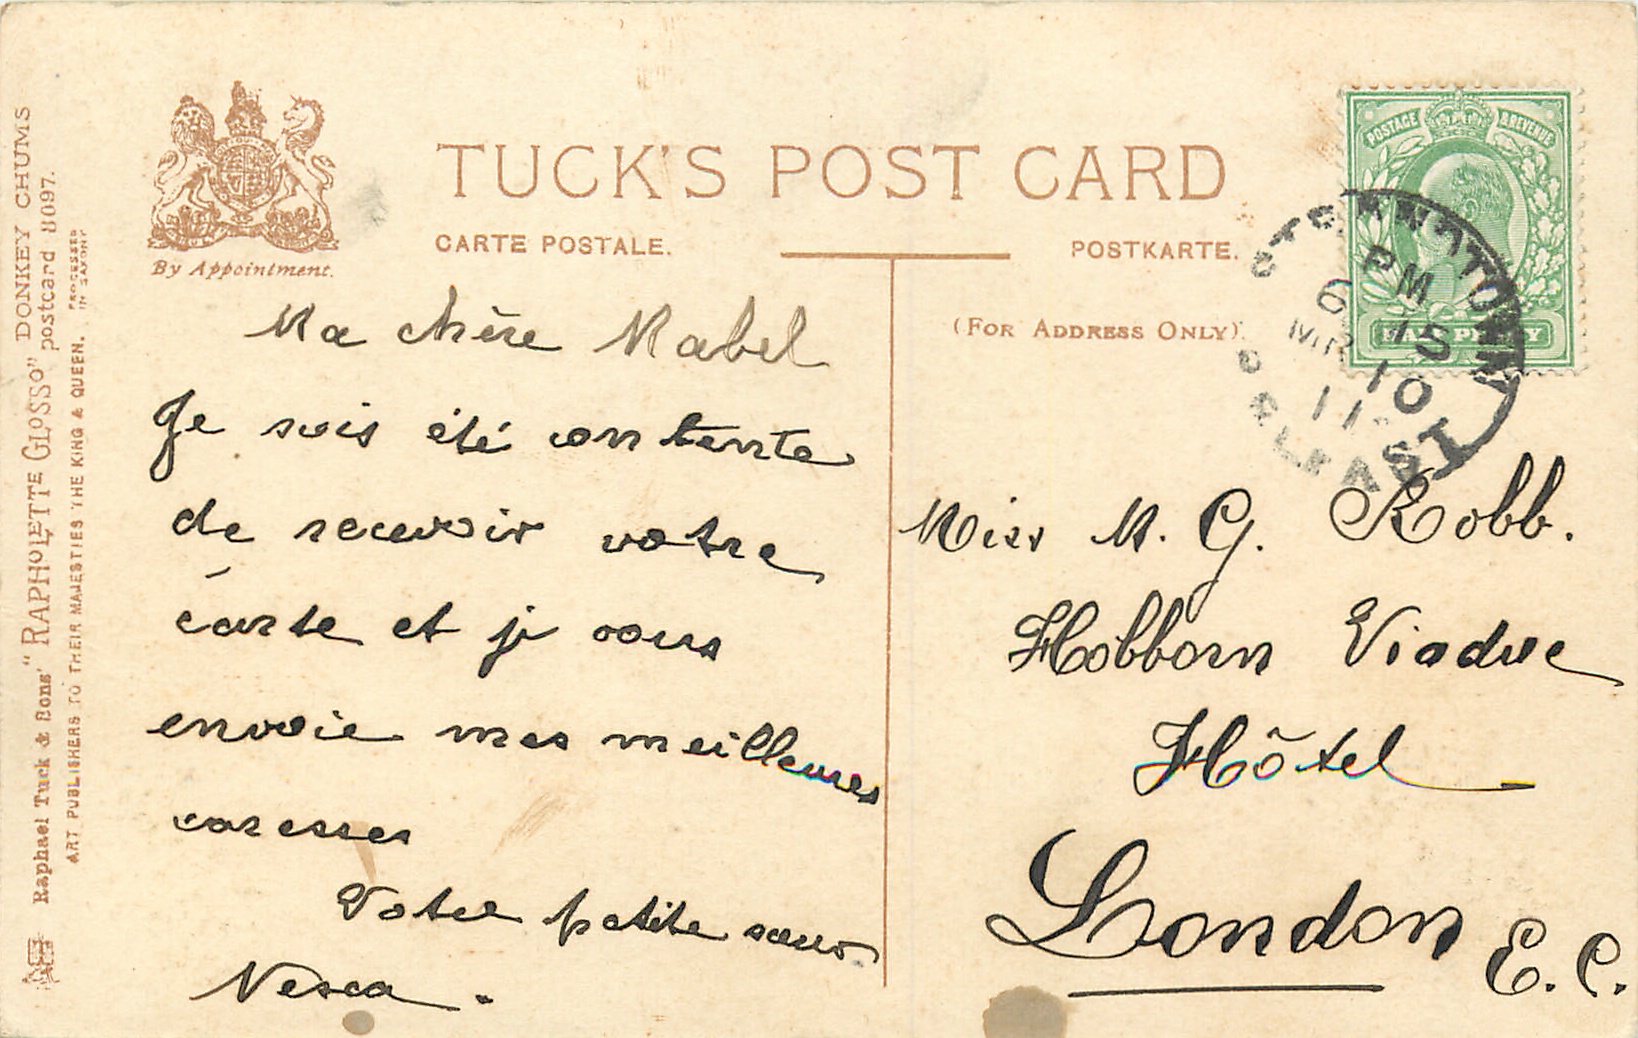 TUCK'S POST CARD
CARTE POSTALE.
POSTKARTE.
By Appointment.
(FOR ADDRESS ONLY).
POSTAGE & REVENUE
HALFPENNY
STRANDTOWN
PM
6 15
MR 10
11
BELFAST
Ma chère Mabel
Je suis été contente
de recevoir votre
carte et je vous
envoie mes meilleures
caresses
Votre petite sœur
Nesca.
Miss M. G. Robb.
Hobborn Viaduc
Hôtel
London E.C.
Raphael Tuck & Sons' "RAPHOLETTE GLOSSO" DONKEY CHUMS
postcard 8097.
ART PUBLISHERS TO THEIR MAJESTIES THE KING & QUEEN.
PROCESSED
IN SAXONY